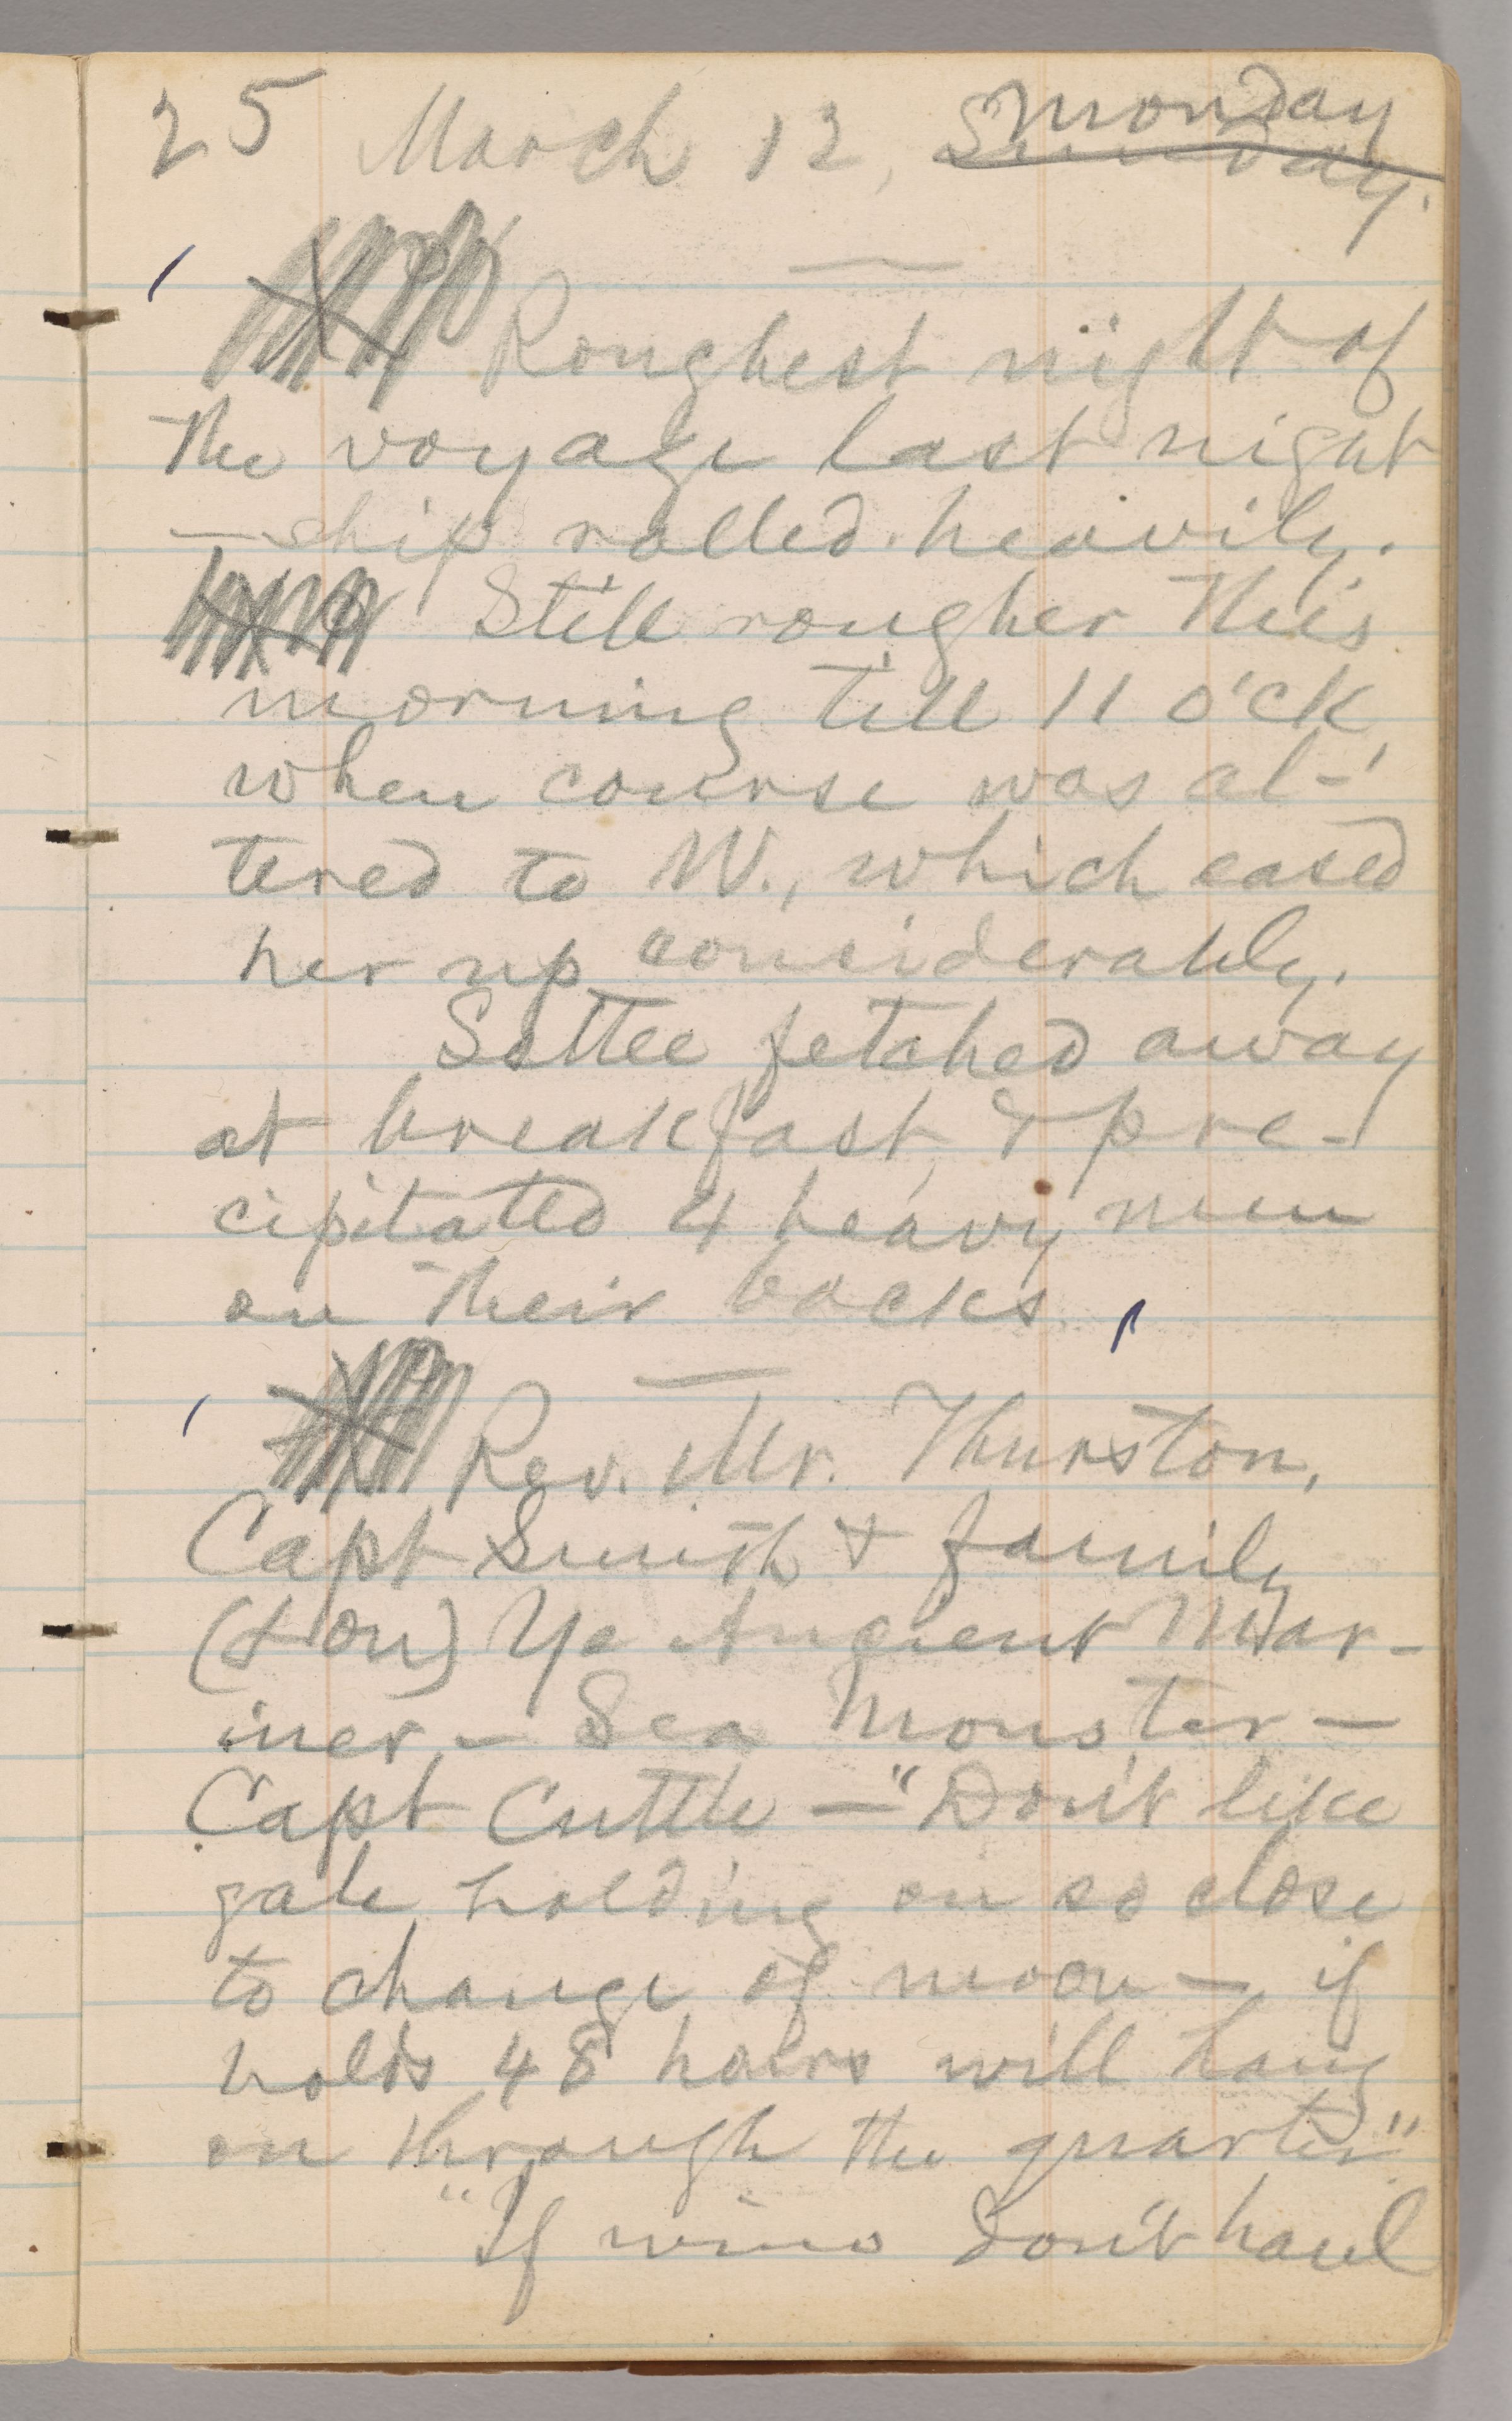 25 March 12, Monday
Sunday.
Roughest night of
the voyage last night
— ship rolled heavily.
Still rougher this
morning till 11 o'ck,
when course was al-
tered to W., which eased
her up considerably.
Settee fetched away
at breakfast, & pre-
cipitated 4 heavy men
on their backs.
Rev. Mr. Thurston,
Capt Smith & family
(& on) Ye Ancient Mar-
iner — Sea Monster —
Capt Cuttle — "Don't like
gale holding on so close
to change of moon — if
holds 48 hours will hang
on through the quarter."
"If wind don't haul